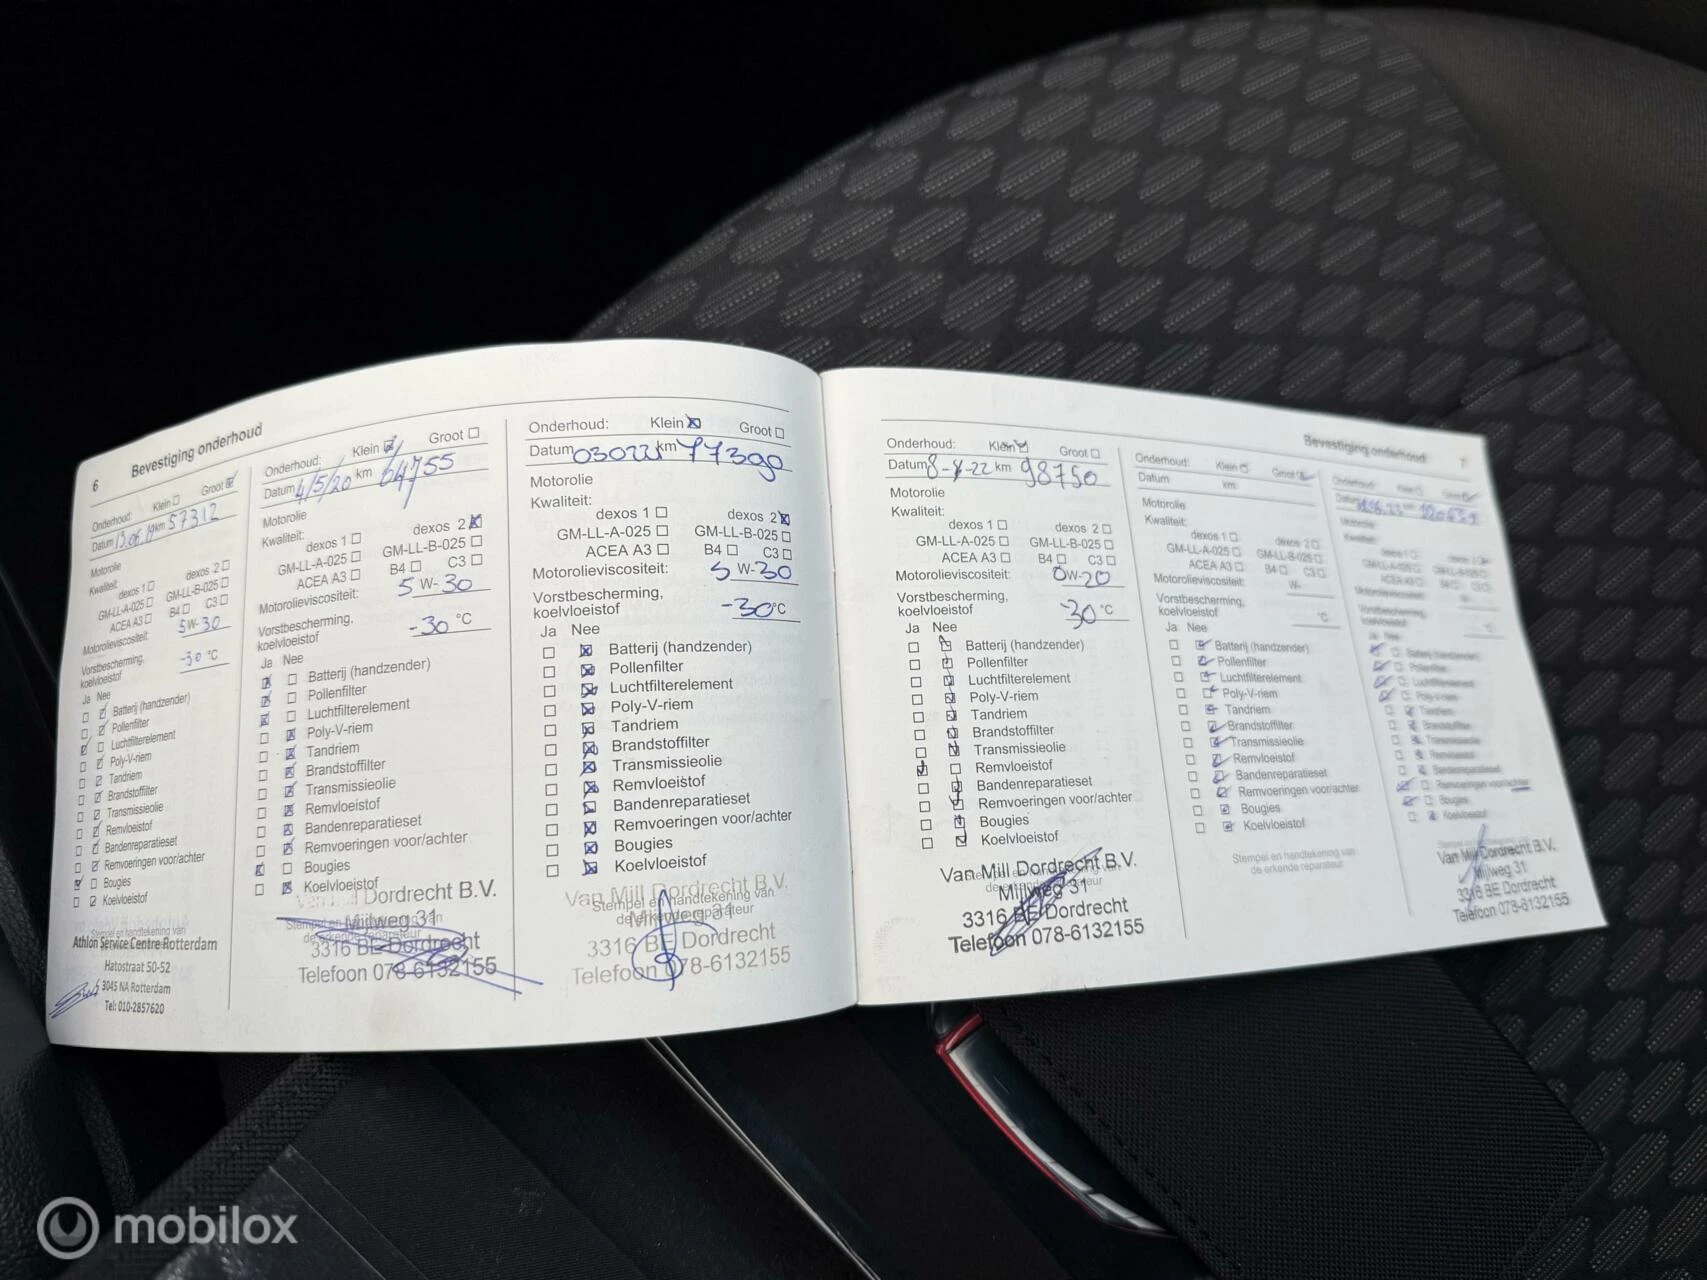 6
Bevestiging onderhoud
Onderhoud: Klein Groot
Datum 13.06.19 km 57312
Motorolie
Kwaliteit:
dexos 1 dexos 2
GM-LL-A-025 GM-LL-B-025
ACEA A3 B4 C3
Motorolieviscositeit: 5W-30
Vorstbescherming, koelvloeistof -30 °C
Ja Nee
Batterij (handzender)
Pollenfilter
Luchtfilterelement
Poly-V-riem
Tandriem
Brandstoffilter
Transmissieolie
Remvloeistof
Bandenreparatieset
Remvoeringen voor/achter
Bougies
Koelvloeistof
Stempel en handtekening van
Athlon Service Centre Rotterdam
Hatostraat 50-52
3045 NA Rotterdam
Tel: 010-2857620
Onderhoud: Klein Groot
Datum 4/5/20 km 64755
Motorolie
Kwaliteit:
dexos 1 dexos 2
GM-LL-A-025 GM-LL-B-025
ACEA A3 B4 C3
Motorolieviscositeit: 5 W-30
Vorstbescherming,
koelvloeistof -30 °C
Ja Nee
Batterij (handzender)
Pollenfilter
Luchtfilterelement
Poly-V-riem
Tandriem
Brandstoffilter
Transmissieolie
Remvloeistof
Bandenreparatieset
Remvoeringen voor/achter
Bougies
Koelvloeistof
Dordrecht B.V.
Mijlweg 31
3316 BE Dordrecht
Telefoon 078-6132155
Onderhoud: Klein Groot
Datum km 77390
Motorolie
Kwaliteit:
dexos 1 dexos 2
GM-LL-A-025 GM-LL-B-025
ACEA A3 B4 C3
Motorolieviscositeit: 5 W-30
Vorstbescherming,
koelvloeistof -30 °C
Ja Nee
Batterij (handzender)
Pollenfilter
Luchtfilterelement
Poly-V-riem
Tandriem
Brandstoffilter
Transmissieolie
Remvloeistof
Bandenreparatieset
Remvoeringen voor/achter
Bougies
Koelvloeistof
Van Mill Dordrecht B.V.
Stempel en handtekening van
de erkende reparateur
Mijlweg 31
3316 BE Dordrecht
Telefoon 078-6132155
Bevestiging onderhoud 7
Onderhoud: Klein Groot
Datum km 98750
Motorolie
Kwaliteit:
dexos 1 dexos 2
GM-LL-A-025 GM-LL-B-025
ACEA A3 B4 C3
Motorolieviscositeit: 0W-20
Vorstbescherming,
koelvloeistof -30 °C
Ja Nee
Batterij (handzender)
Pollenfilter
Luchtfilterelement
Poly-V-riem
Tandriem
Brandstoffilter
Transmissieolie
Remvloeistof
Bandenreparatieset
Remvoeringen voor/achter
Bougies
Koelvloeistof
Van Mill Dordrecht B.V.
Mijlweg 31
3316 BE Dordrecht
Telefoon 078-6132155
Onderhoud: Klein Groot
Datum km
Motorolie
Kwaliteit:
dexos 1 dexos 2
GM-LL-A-025 GM-LL-B-025
ACEA A3 B4 C3
Motorolieviscositeit: W-
Vorstbescherming,
koelvloeistof °C
Ja Nee
Batterij (handzender)
Pollenfilter
Luchtfilterelement
Poly-V-riem
Tandriem
Brandstoffilter
Transmissieolie
Remvloeistof
Bandenreparatieset
Remvoeringen voor/achter
Bougies
Koelvloeistof
Stempel en handtekening van
de erkende reparateur
Onderhoud: Klein Groot
Datum km
Motorolie
Kwaliteit:
dexos 1 dexos 2
GM-LL-A-025 GM-LL-B-025
ACEA A3 B4 C3
Motorolieviscositeit:
Vorstbescherming,
koelvloeistof °C
Ja Nee
Batterij (handzender)
Pollenfilter
Luchtfilterelement
Poly-V-riem
Tandriem
Brandstoffilter
Transmissieolie
Remvloeistof
Bandenreparatieset
Remvoeringen voor/achter
Bougies
Koelvloeistof
Van Mill Dordrecht B.V.
Mijlweg 31
3316 BE Dordrecht
Telefoon 078-6132155
mobilox